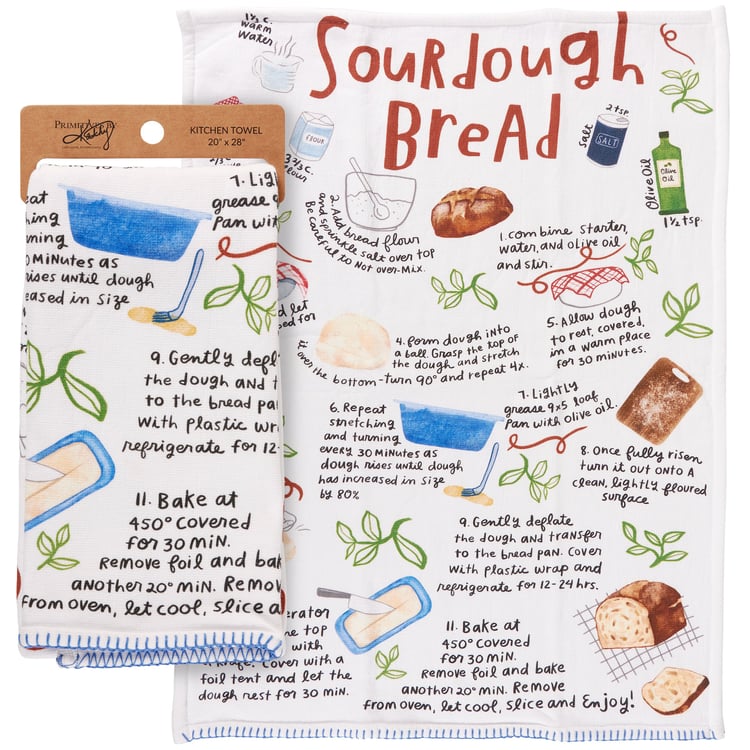 PRIMITIVES
Kathy
KITCHEN TOWEL
20" x 28"
7. Lig
grease
Pan with
eat
ching
rning
MINUTES as
rises until dough
eased in Size
9. Gently defl
the dough and t
to the bread pa
With plastic wr
refrigerate for 12-
11. Bake at
450° covered
for 30 MiN.
Remove foil and bak
another 20° MiN. Remov
from oven, let cool, slice a
1½ c.
Warm
Water
Sourdough
Bread
3 ⅔ c.
flour
2 tsp
Salt
SALT
Olive Oil
Olive Oil
1½ tsp.
1. Combine starter,
water, and olive oil
and stir.
2. Add bread flour
and sprinkle salt over top
Be careful to Not over-Mix.
d let
ped for
4. Form dough into
a ball. Grasp the top of
the dough and stretch
it over the bottom-turn 90° and repeat 4x.
5. Allow dough
to rest, covered,
in a warm place
for 30 minutes.
6. Repeat
stretching
and turning
every 30 Minutes as
dough rises until dough
has increased in size
by 80%
7. Lightly
grease 9x5 loaf
Pan with olive oil.
8. Once fully risen
turn it out onto A
clean, lightly floured
surface
9. Gently deflate
the dough and transfer
to the bread pan. Cover
With plastic wrap and
refrigerate for 12-24 hrs.
erator
e top
with
a knife. Cover with a
foil tent and let the
dough rest for 30 min.
11. Bake at
450° covered
for 30 MiN.
Remove foil and bake
another 20° MiN. Remove
from oven, let cool, slice and Enjoy!